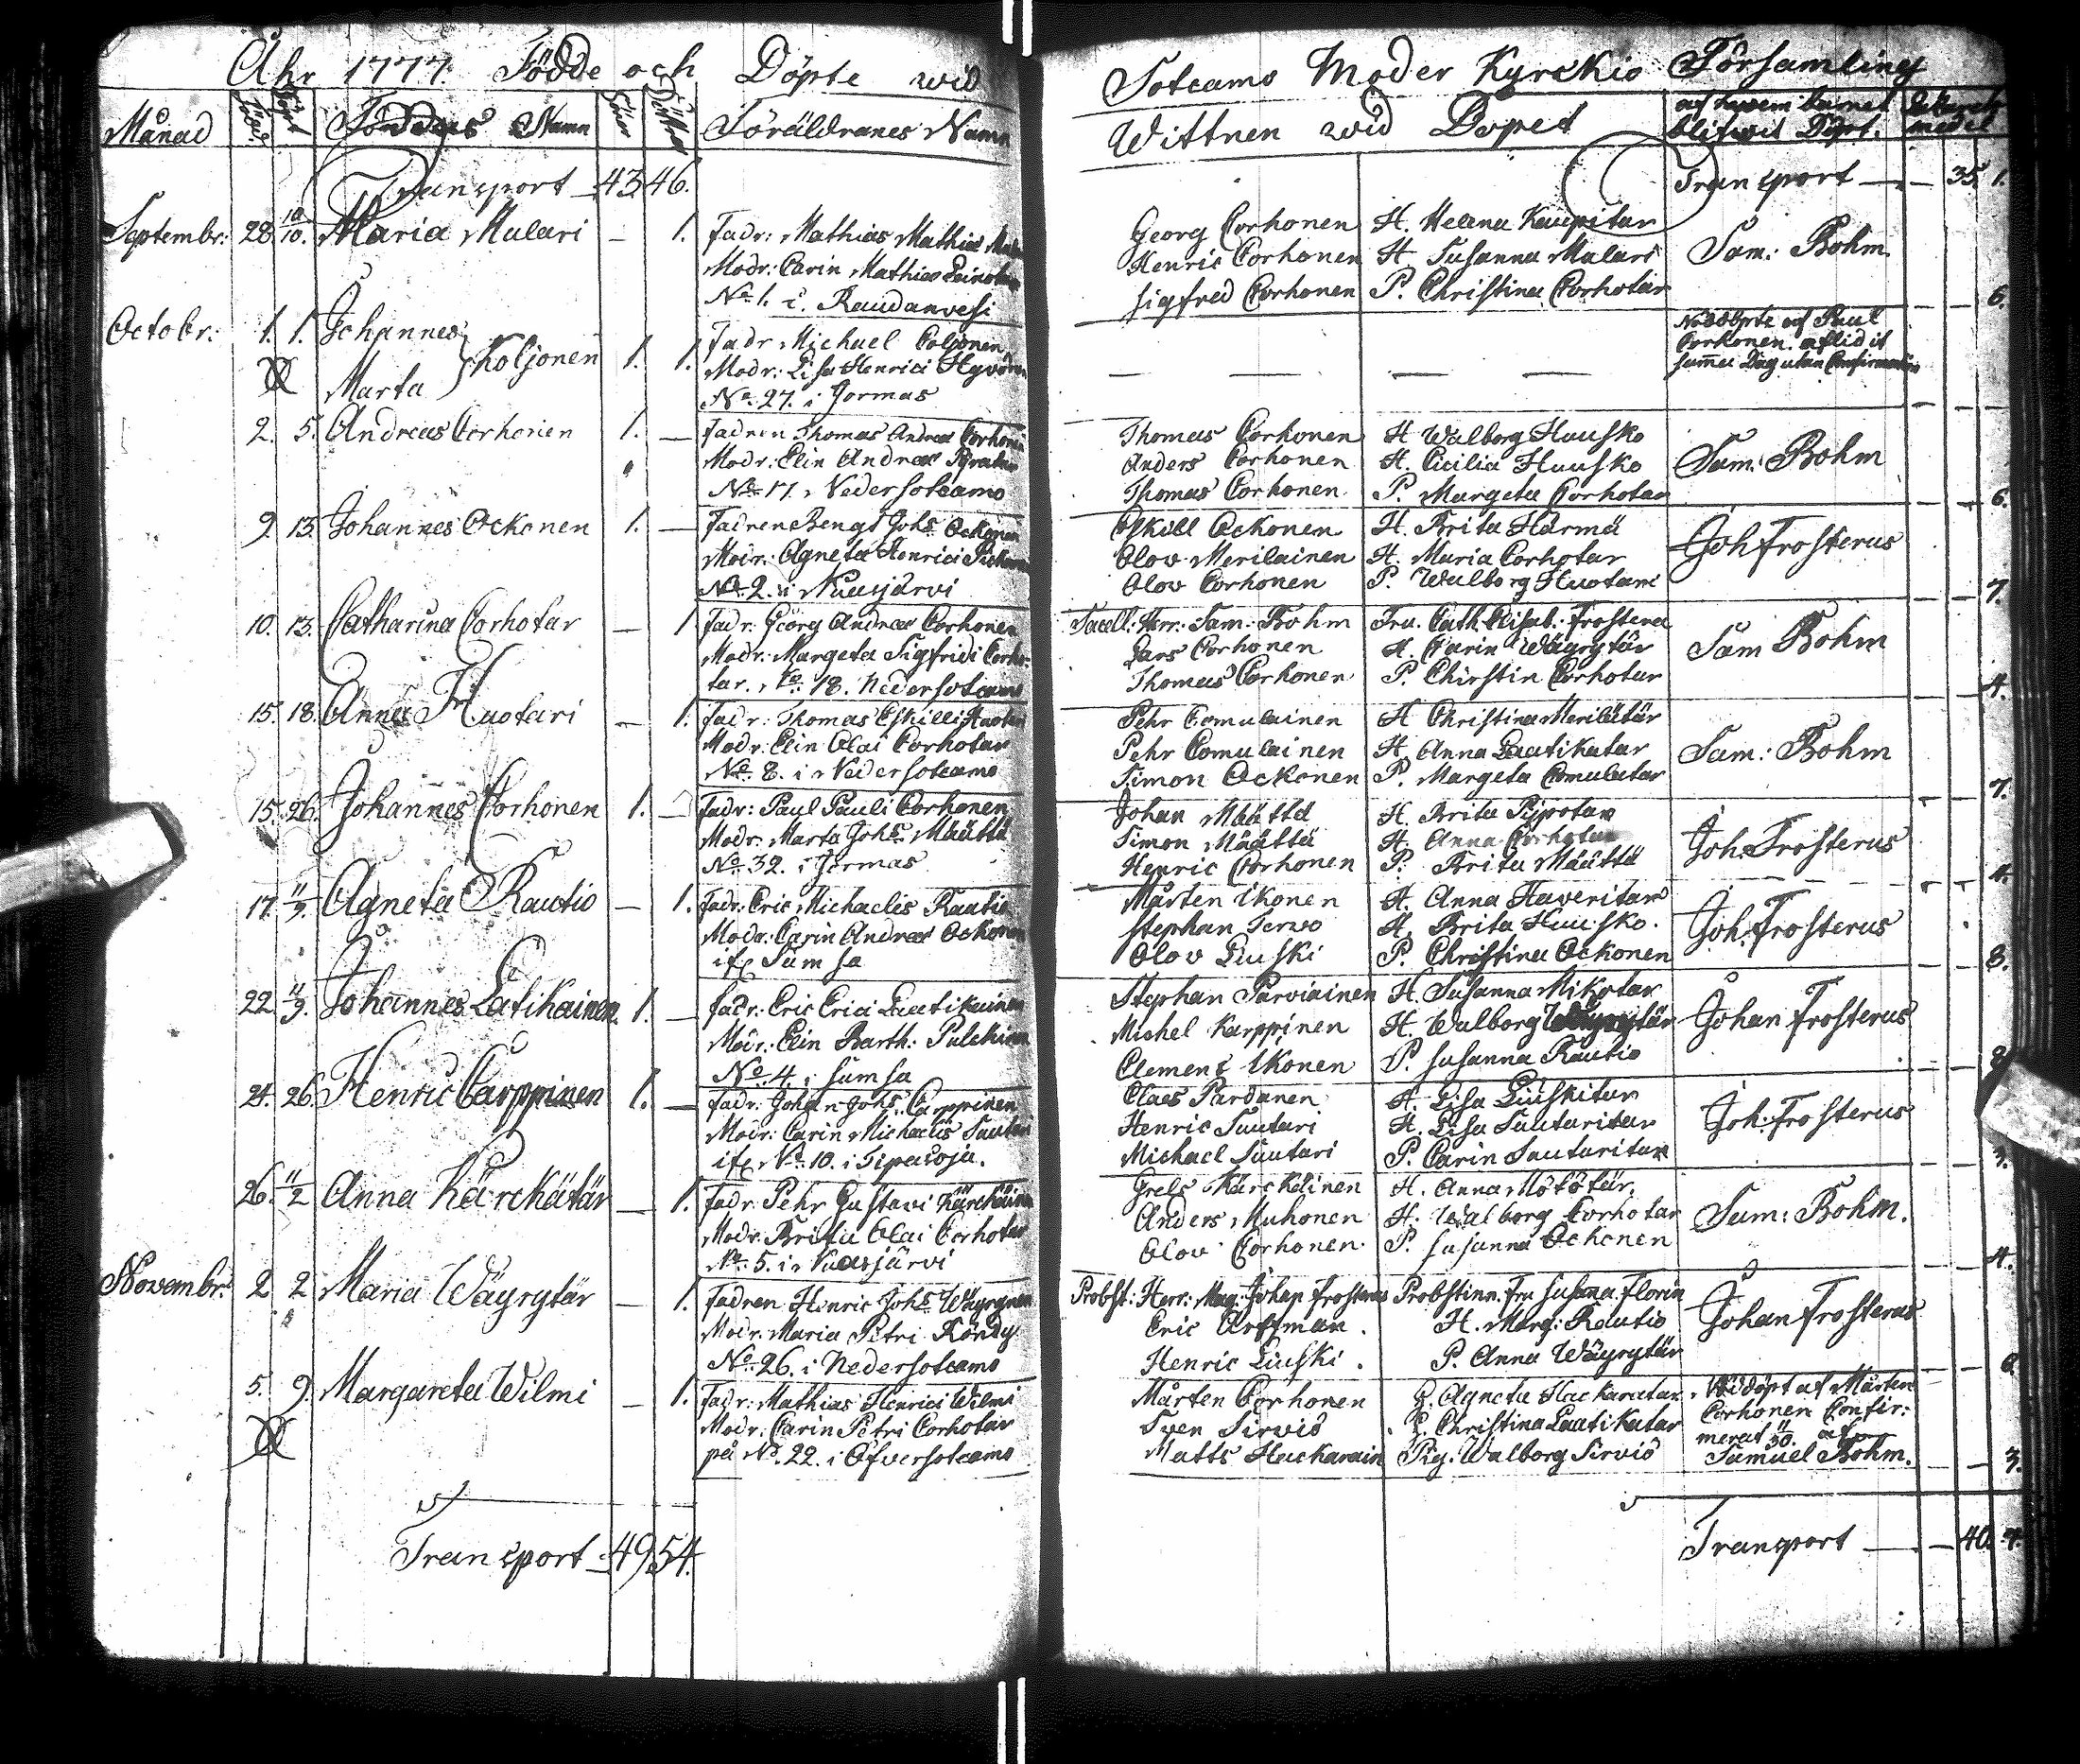 Åhr 1777. Födde och Döpte wid
Månad Född Döpt Foddas Namn Söner Döttrar Föräldranes Namn
Transport 43 46.
Septembr: 28. 10/10. Maria Mulari — 1. Fadr: Mathias Mathiæ
Modr: Carin Mathiæ
No 1. i Raudanvesi
Octobr: 1. 1. Johannes
Marta } Koljonen 1. 1. Fadr Michael Coljonen
Modr: Lisa Henrici
No 27. i Jormas
2. 5. Andreas Corhonen 1. — Fadren Thomas Andreæ Corhonen
Modr: Elin Andreæ
No 17. i Nedersotcamo
9. 13. Johannes Ockonen 1. — Fadren Bengt Johs Ockonen
Modr: Agneta Henrici
No 2. i Nuasjärvi
10. 13. Catharina Corhotar — 1 Fadr: Georg Andreæ Corhonen
Modr: Margeta Sigfridi Corho-
tar. No 18. Nedersotcamo
15. 18. Anna Huotari — 1. Fadr: Thomas Eskilli Huotari
Modr: Elin Olai Corhotar
No 8. i Nedersotcamo
15. 26. Johannes Corhonen 1. — Fadr: Paul Pauli Corhonen
Modr: Marta Johs Määttä
No 32. i Jormas
17. 11/9. Agneta Rautio — 1. Fadr: Eric Michaelis Rautio
Modr: Carin Andreæ Ockonen
if Sumsa
22. 11/9. Johannes Latikainen 1. — Fadr: Eric Erici Laatikainen
Modr: Elin Barth: Pulckinen
No 4. i Sumsa
24. 26. Henric Carppinen 1. — Fadr: Johan Johs Carppinen
Modr: Carin Michaelis
if No 10. i Tipasoja.
26. 11/2 Anna Kärckätär — 1. Fadr: Pehr Gustavi Kärckäinen
Modr: Brita Olai Corhotar
No 5. i Nuasjärvi
Novembr: 2 2 Maria Wäyrytär — 1. Fadren Henric Johs Wäyrynen
Modr: Maria Petri
No 26. i Nedersotcamo
5. 9. Margareta Wilmi — 1. Fadr: Mathias Henrici Wilmi
Modr: Carin Petri Corhotar
på No 22. i Öfversotcamo
Transport 49 54.
Sotcamo Moder Kyrckio Församling
Wittnen wid Dopet af hwem barnet
blifwit Döpt.
Transport — 35. 1.
Georg Corhonen H. Helena Kaupitar
Henric Corhonen H. Susanna Mulari Sam: Bohm
Sigfred Corhonen P. Christina Corhotar 6.
Nöddöpte af Paul
Corhonen. aflidit
samma Dag utan Confirmation
Thomas Corhonen H Walborg Huusko
Anders Corhonen H. Cicilia Huusko Sam: Bohm
Thomas Corhonen P. Margeta Corhotar 6.
Eskill Ockonen H. Brita Härmä
Olov Merilainen H. Maria Corhotar Joh Frosterus
Olov Corhonen P. Walborg Huotari 7.
Sacell: Herr: Sam: Bohm Fru. Cath: Elisab: Frostera
Lars Corhonen H. Carin Wäyrytär Sam Bohm
Thomas Corhonen P. Christin Corhotar 4.
Pehr Comulainen H Christina Merilätär
Pehr Comulainen H. Anna Laatikatar Sam: Bohm
Simon Ockonen P. Margeta Comulatar 7.
Johan Määttä H. Brita
Simon Määttä H. Anna Corhotar Joh: Frosterus
Henric Corhonen P. Brita Määttä 4.
Mårten Ikonen H. Anna Haveritar
Stephan Terwo H. Brita Huusko. Joh: Frosterus
Olov Liuski P. Christina Ockonen 8.
Stephan Parviainen H. Susanna Mikotar
Michel Karppinen H. Walborg Johan Frosterus
Clemens Ikonen P. Susanna Rautio 8
Claes Pardanen H. Lisa Liuskitar
Henric Sautari H. Lisa Sautaritar Joh: Frosterus
Michael Sautari P. Carin Sautaritar 3.
Grels Kärckäinen H. Anna Mötötär.
Anders Muhonen H. Walborg Corhotar Sam: Bohm.
Olov Corhonen P. Susanna Ockonen 4.
Probst: Herr: Mag: Johan Frosterus Probstinn: Fru Susana Florin
Eric Arffman. H. Marg: Rautio Johan Frosterus
Henric Liuski. P. Anna Wäyrytär 6.
Mårten Corhonen H. Agneta Hackaratar. Nöddöpt af Mårten
Sven Sirviö H. Christina Laatikatar Corhonen Confir:
Matts Hackarain Pig. Walborg Sirviö merat 11/30. af
Samuel Bohm. 3.
Transport — 40. 4.